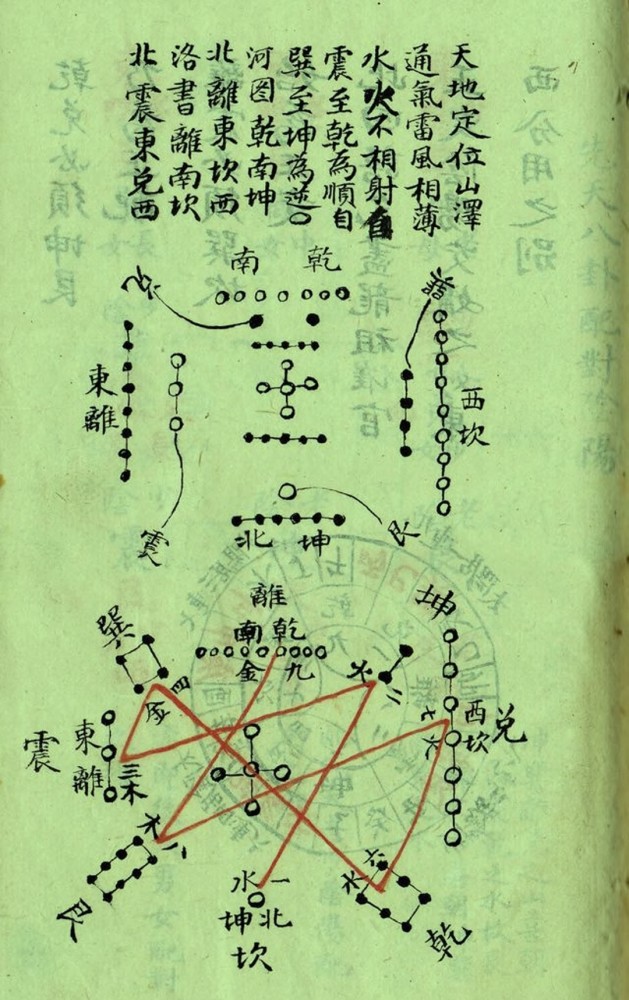 天地定位山澤
通氣雷風相薄
水火不相射自
震至乾為順自
巽至坤為逆〇
河图乾南坤
北離東坎西
洛書離南坎
北震東兌西
南 乾
兌
巽
東離
西坎
震
艮
北 坤
離
南乾
金 九
巽
四
金
火
二
坤
西坎
兌
七
火
震
東離
三
木
木
八
艮
水 一
坤北
坎
六
水
乾